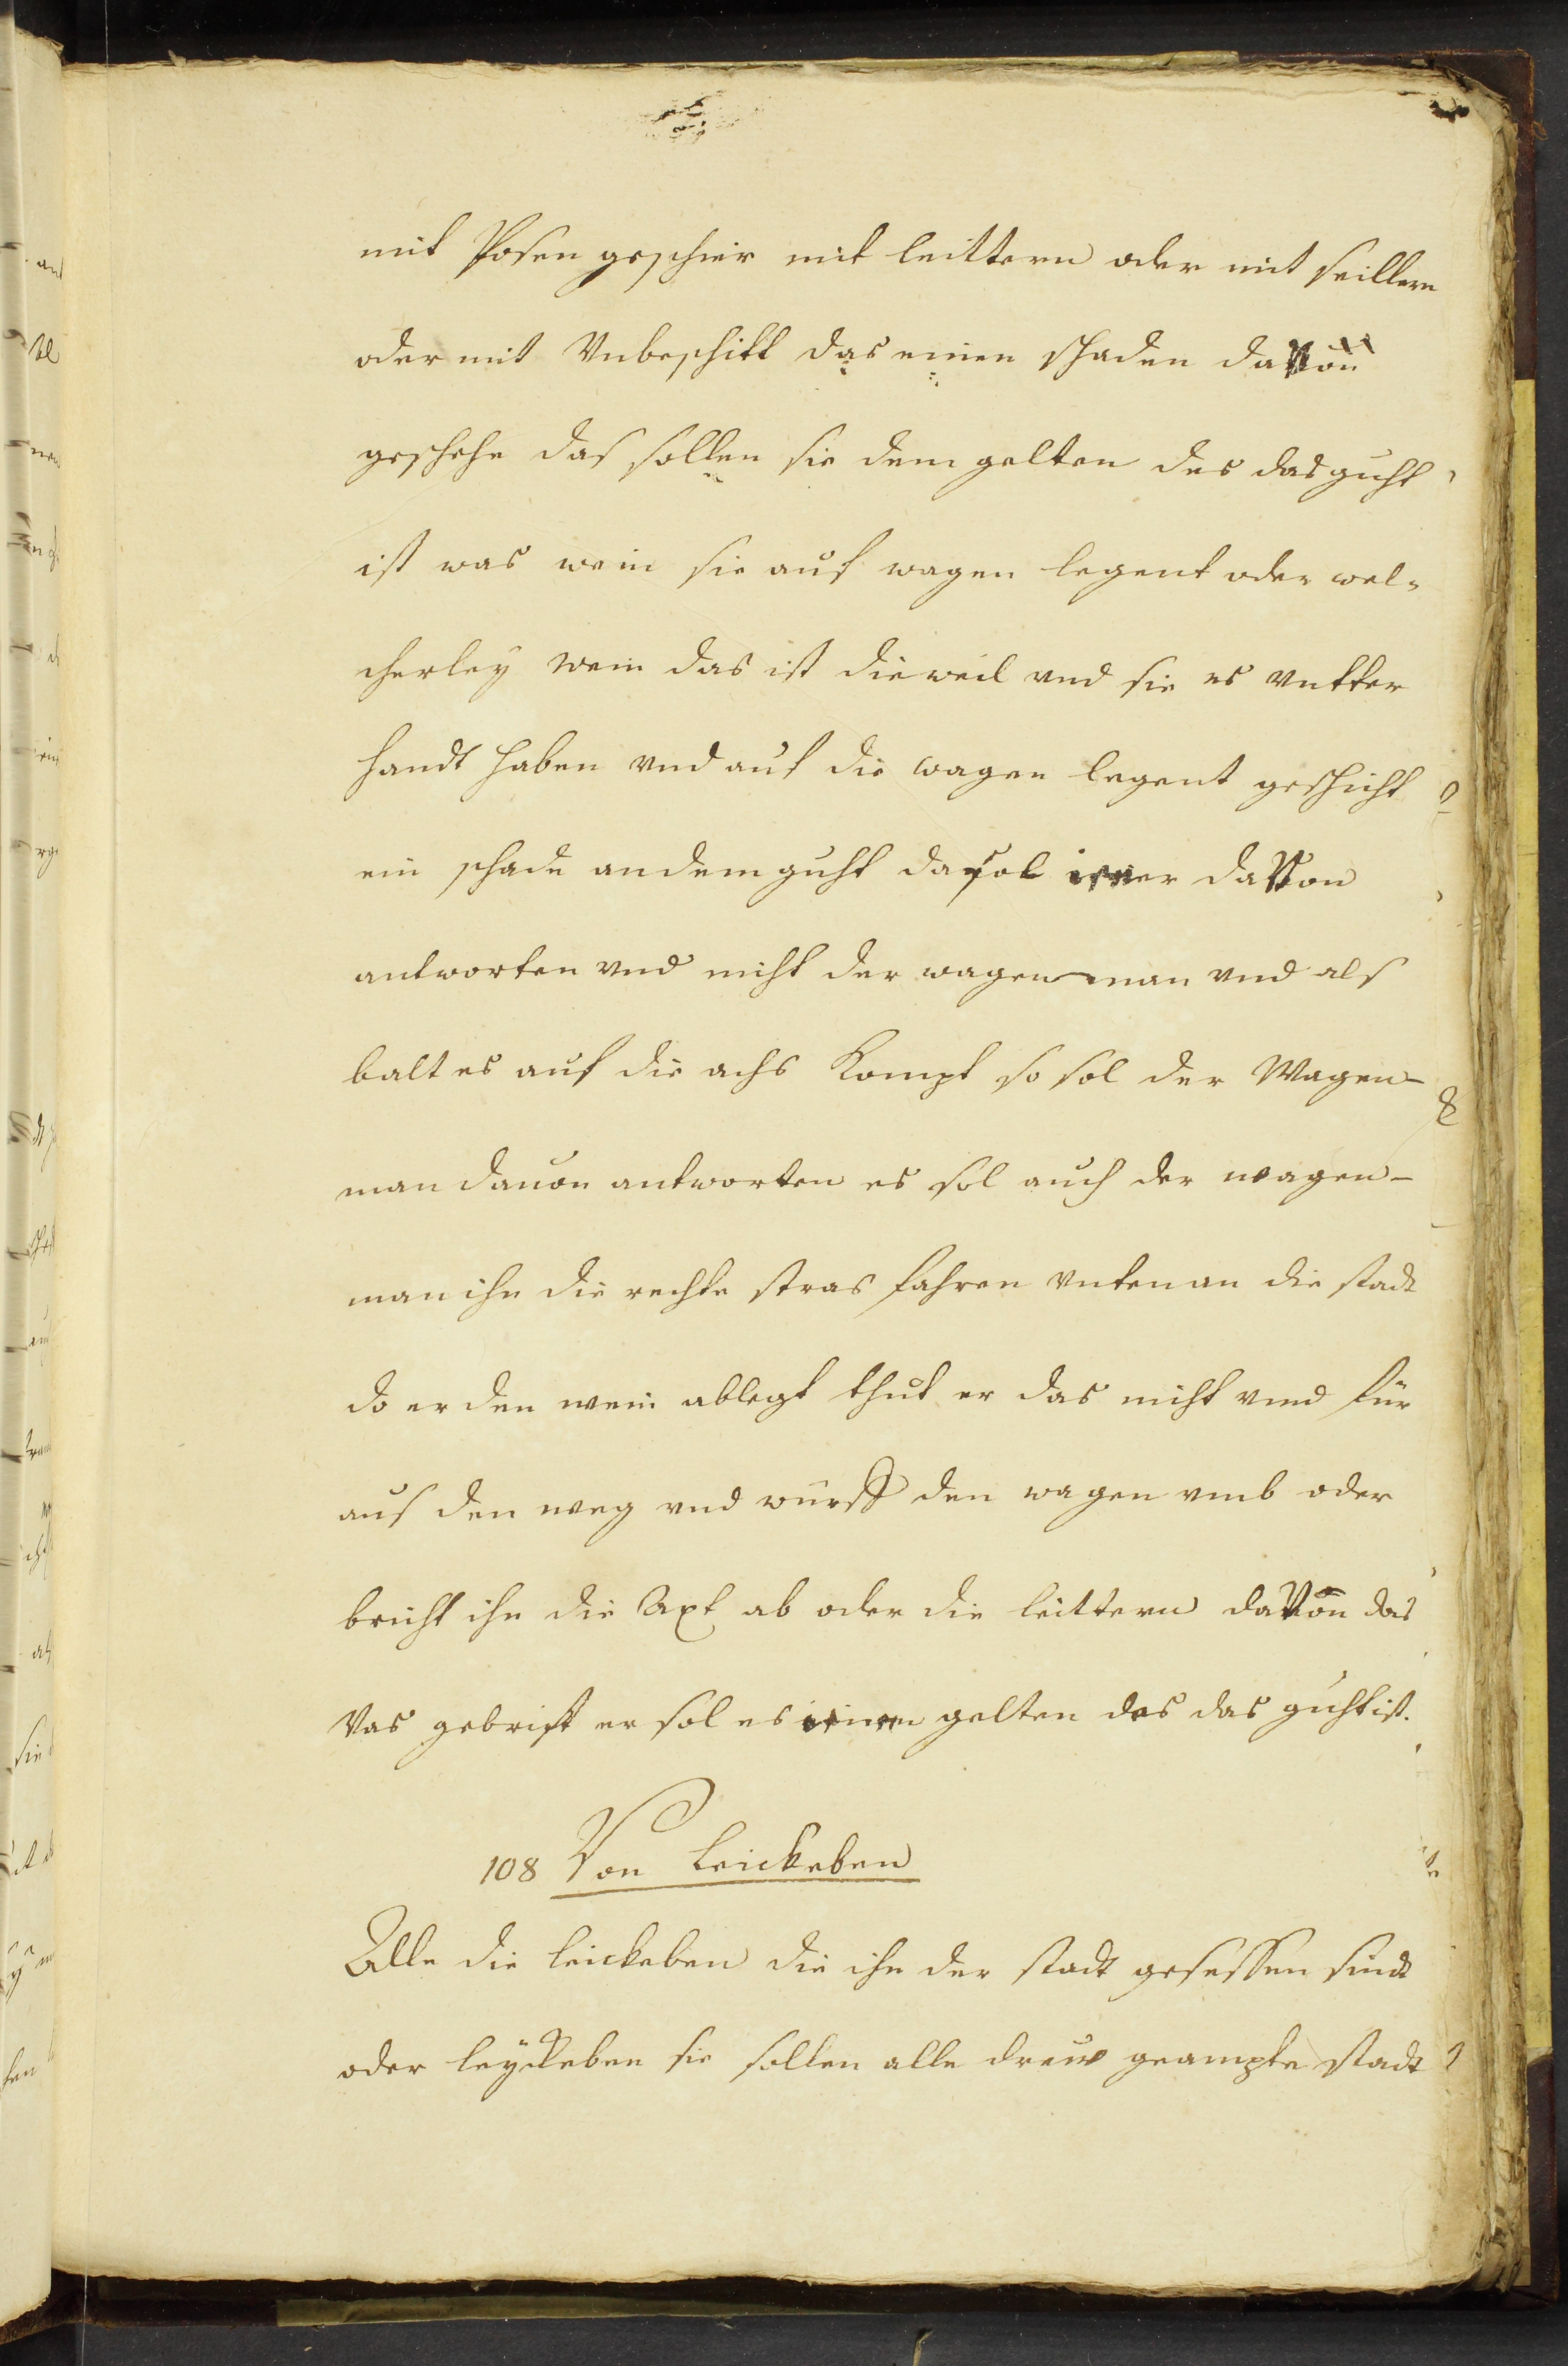 mit Posen geschier mit leittern oder mit seillern
oder mit Vnbeschikt das einen schaden davon
geschehe das sollen sie dem gelten des das guht
ist was wein sie auf wagen legent oder wel-
cherley wein das ist die weil vnd sie es vntter
handt haben vnd auf die wagen legent geschicht
ein schade an dem guht da sol davon
antworten vnd nicht der wagenman vnd als
balt es auf die achs kompt so sol der Wagen-
man dauon antworten es sol auch der wagen-
man ihn die rechte stras fahren vnten an die stadt
do er den wein ablegt thut er das nicht vnd für
aus den weg vnd würff den wagen vmb oder
bricht ihn die Axt ab oder die leittern davon das
Vas gebrist er sol es gelten des das guht ist.
108 Von Leickeben
Alle die leickeben die ihn der stadt gesessen sindt
oder leyckeben sie sollen alle dreuw geampte stadt